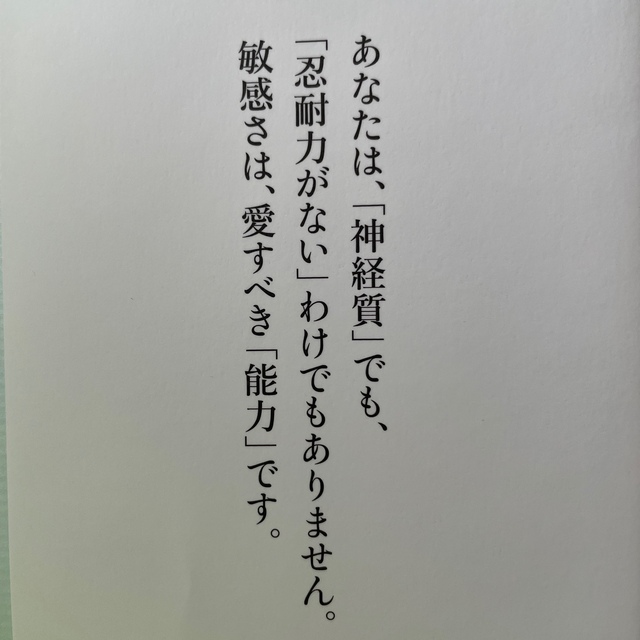 あなたは、「神経質」でも、
「忍耐力がない」わけでもありません。
敏感さは、愛すべき「能力」です。